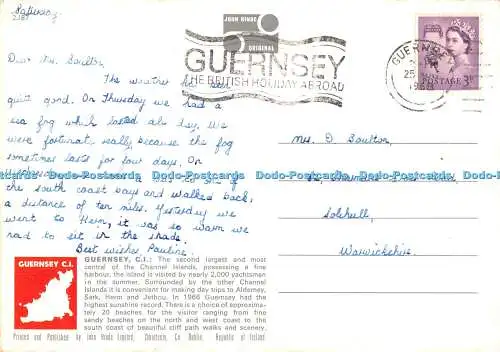 JOHN HINDE
ORIGINAL
GUERNSEY
THE BRITISH HOLIDAY ABROAD
GUERNSEY
25
1968
POSTAGE 3D
Dear Mrs. Boulton,
The weather has been
quite good. On Thursday we had a
sea fog which lasted all day. We
were fortunate really because the fog
sometimes lasts for four days. On
to one of
the south coast bays and walked back,
a distance of ten miles. Yesterday we
went to Herm, it was so warm we
had to sit in the shade.
Best wishes Pauline.
Mrs. D. Boulton,
Solihull,
Warwickshire.
Dodo-Postcards Dodo-Postcards Dodo-Postcards Dodo-Postcards Dodo-Postcards
GUERNSEY C.I.
GUERNSEY, C.I.: The second largest and most
central of the Channel Islands, possessing a fine
harbour, the island is visited by nearly 2,000 yachtsmen
in the summer. Surrounded by the other Channel
Islands it is convenient for making day trips to Alderney,
Sark, Herm and Jethou. In 1966 Guernsey had the
highest sunshine record. There is a choice of approxima-
tely 20 beaches for the visitor ranging from fine
sandy beaches on the north and west coast to the
south coast of beautiful cliff path walks and scenery.
Printed and Published by John Hinde Limited, Cabinteely, Co Dublin, Republic of Ireland